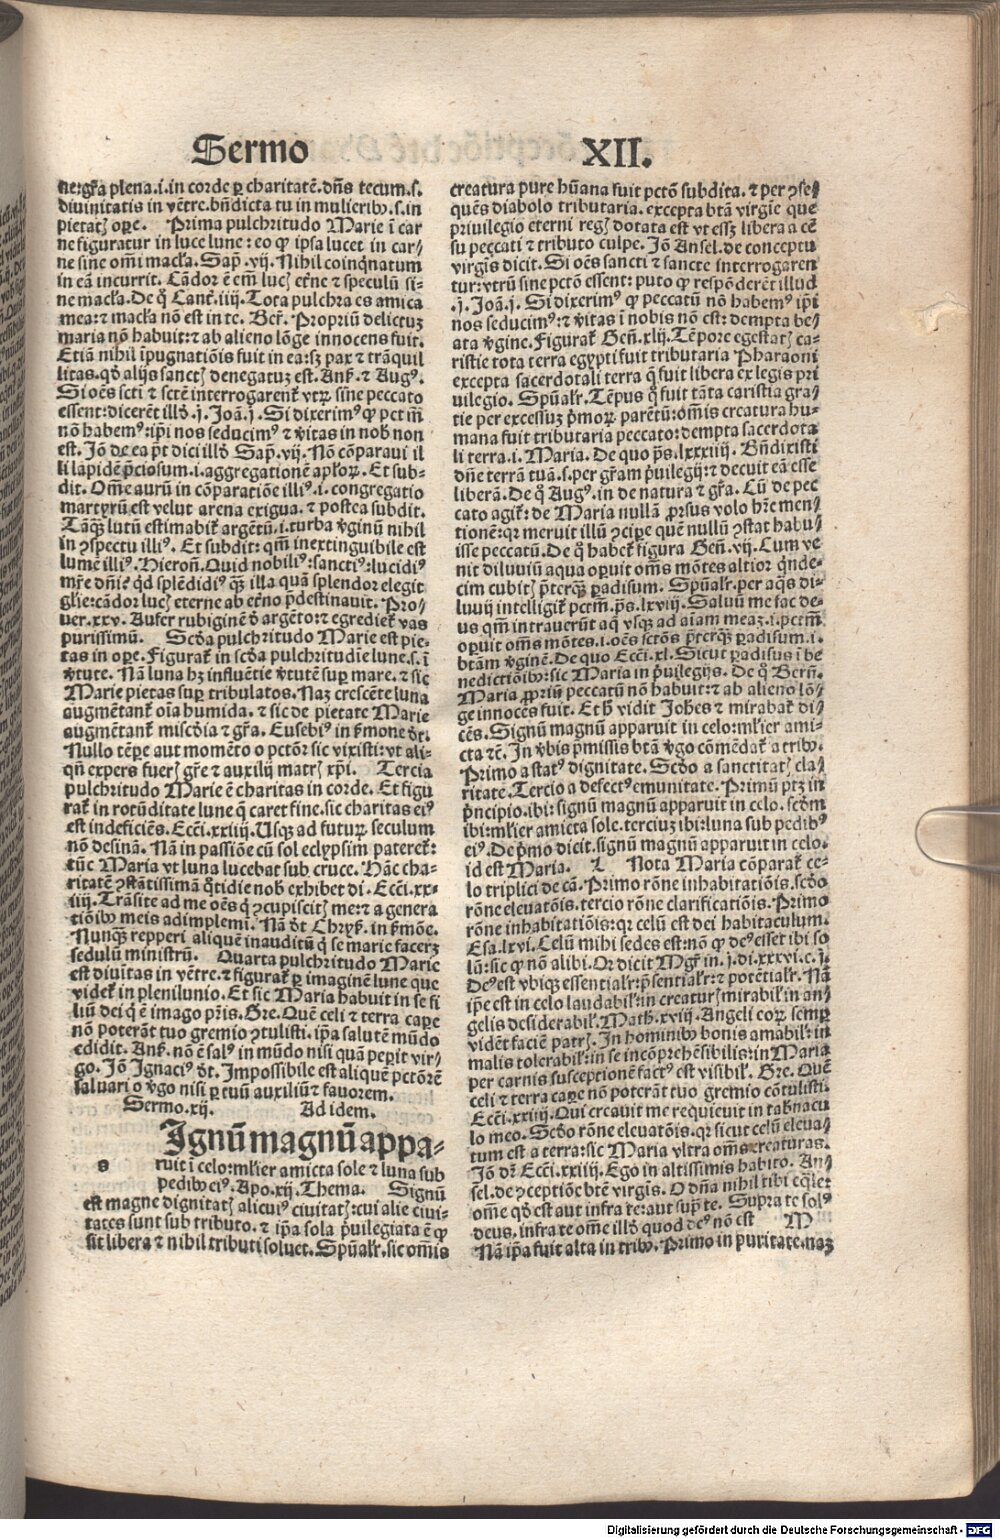 Sermo XII.
ne:gr̃a plena.i.in corde ꝑ charitatẽ.dñs tecum.s.
diuinitatis in vẽtre.bñdicta tu in mulieribꝰ.s.in
pietatꝭ oꝑe. Prima pulchritudo Marie ĩ car
ne figuratur in luce lune: eo ꝙ ipsa lucet in car/
ne sine om̃i macľa. Sap̃.vij. Nihil coinq̃natum
in eã incurrit. Cãdor ẽ em̃ lucꝭ et̃ne ⁊ speculũ si-
ne macľa. De q̃ Cant̃.iiij. Tota pulchra es amica
mea: ⁊ macľa nõ est in te. Ber̃. Propriũ delictuꝫ
maria nõ habuit: ⁊ ab alieno lõge innocens fuit.
Etiã nihil ĩpugnatiõis fuit in ea: sꝫ pax ⁊ trãquil
litas. qď alijs sanctꝭ denegatuꝫ est. Anß. ⁊ Augꝰ.
Si oẽs scti ⁊ sctẽ interrogarent̃ vtꝝ sine peccato
essent: dicerẽt illď.j. Joã.j. Si dixerimꝰ ꝙ pct̃m̃
nõ habemꝰ: ip̃i nos seducimꝰ ⁊ v̓itas in nob̃ non
est. Jõ de ea p̃t dici illď Sap̃.vij. Nõ cõparaui il
li lapidẽ p̃ciosum.i.aggregationẽ apľoꝝ. Et sub-
dit. Om̃e aurũ in cõparatiõe illiꝰ.i.congregatio
martyrũ est velut arena exigua. ⁊ postea subdit.
Tãqꝫ lutũ estimabit̃ argẽtũ.i.turba v̓ginũ nihil
in ꝯspectu illiꝰ. Et subdit: qm̃ inextinguibile est
lumẽ illiꝰ. Hieroñ. Quid nobiliꝰ: sanctiꝰ: lucidiꝰ
mr̃e dñi ẽ qď splẽdidiꝰ qꝫ illa quã splendor elegit
gľie: cãdor lucꝭ eterne ab et̃no p̃destinauit. Pro/
uer.xxv. Aufer rubiginẽ ď argẽto: ⁊ egrediet̃ vas
purissimũ. Scďa pulchritudo Marie est pie-
tas in oꝑe. Figurat̃ in scďa pulchritudĩe lune.s.ĩ
v̓tute. Nã luna hꝫ influẽtie v̓tutẽ suꝑ mare. ⁊ sic
Marie pietas suꝑ tribulatos. Naꝫ crescẽte luna
augmẽtant̃ oĩa humida. ⁊ sic de pietate Marie
augmẽtant̃ mis̃cďia ⁊ gr̃a. Eusebiꝰ in s̃mone ďt.
Nullo tẽꝑe aut momẽto o pctõr̃ sic vixisti: vt ali-
qñ expers fuerꝭ gr̃e ⁊ auxilij matrꝭ xp̃i. Tercia
pulchritudo Marie ẽ charitas in corde. Et figu
rat̃ in rotũditate lune q̃ caret fine. sic charitas eiꝰ
est indeficiẽs. Ecci.xxiiij. Usqꝫ ad futuꝝ seculum
nõ desinã. Nã in passiõe cũ sol eclypsim̃ pateret̃:
tũc Maria vt luna lucebat sub cruce. Hãc cha-
ritatẽ ꝯstãtissimã q̃tidie nob̃ exhibet di. Ecci.xx-
iiij. Trãsite ad me oẽs q̃ ꝯcupiscitꝭ me: ⁊ a genera
tiõibꝰ meis adimplemi. Nã ďt Chryß. in s̃mõe.
Nunqꝫ repperi aliquẽ inauditũ q̃ se marie facerꝫ
sedulũ ministrũ. Quarta pulchritudo Marie
est diuĩtas in vẽtre. ⁊ figurat̃ ꝑ imaginẽ lune que
videt̃ in plenilunio. Et sic Maria habuit in se fi
liũ dei q̃ ẽ imago pr̃is. Gre. Quẽ celi ⁊ terra caꝑe
nõ poterãt tuo gremio ꝯtulisti. ip̃a salutẽ mũdo
edidit. Anß. nõ ẽ salꝰ in mũdo nisi quã peꝑit vir-
go. Jõ Ignaciꝰ ďt. Impossibile est aliquẽ pctõrẽ
saluari o v̓go nisi ꝑ tuũ auxiliũ ⁊ fauorem.
Sermo.xij. Ad idem.
Ignũ magnũ appa-
s ruit ĩ celo: mľier amicta sole ⁊ luna sub
pedibꝰ eiꝰ. Apo.xij. Thema. Signũ
est magne dignitatꝭ alicuiꝰ ciuitatꝭ: cui alie ciui-
tates sunt sub tributo. ⁊ ip̃a sola p̃uilegiata ẽ ꝙ
sit libera ⁊ nihil tributi soluet. Sp̃ualr̃. sic om̃is
creatura pure hũana fuit pctõ subdita. ⁊ per ꝯse/
quẽs diabolo tributaria. excepta btã virgĩe que
priuilegio eterni regꝭ dotata est vt essꝫ libera a cẽ
su peccati ⁊ tributo culpe. Jõ Ansel. de conceptu
virgĩs dicit. Si oẽs sancti ⁊ sancte interrogaren
tur: vtrũ sine pctõ essent: puto ꝙ respõderẽt illud
.j. Joã.j. Si dixerimꝰ ꝙ peccatũ nõ habemꝰ ip̃i
nos seducimꝰ: ⁊ v̓itas ĩ nobis nõ est: dempta be/
ata v̓gine. Figurat̃ Geñ.xlij. Tẽpore egestatꝭ ca-
ristie tota terra egypti fuit tributaria Pharaoni
excepta sacerdotali terra q̃ fuit libera ex legis pri
uilegio. Sp̃ualr̃. Tẽpus q̃ fuit tãta caristia gra/
tie per excessuꝫ p̃moꝝ parẽtũ: om̃is creatura hu-
mana fuit tributaria peccato: dempta sacerdota
li terra.i. Maria. De quo p̃s.lxxxiiij. Bñdixisti
dñe terrã tuã.s.per gr̃am p̃uilegij: ⁊ decuit eã esse
liberã. De q̃ Augꝰ. in de natura ⁊ gr̃a. Cũ de pec
cato agit̃: de Maria nullã ꝓrsus volo hr̃e men/
tionẽ: qꝛ meruit illũ ꝯciꝑe quẽ nullũ ꝯstat habu/
isse peccatũ. De q̃ habet̃ figura Geñ.vij. Cum ve
nit diluuiũ aqua oꝑuit om̃s mõtes altior q̃nde-
cim cubitꝭ p̃terqꝫ ꝑadisum. Sp̃ualr̃. per aq̃s di-
luuij intelligit̃ pctm̃. p̃s.lxviij. Saluũ me fac de-
us qm̃ intrauerũt aq̃ vsqꝫ ad aĩam meaꝫ.i.pctm̃
oꝑuit om̃s mõtes.i.oẽs sctõs p̃terqꝫ ꝑadisum.i.
btãm v̓ginẽ. De quo Ecci.xl. Sicut ꝑadisus ĩ be
nedictiõibꝰ: sic Maria in p̃uilegijs. De q̃ Berñ.
Maria ꝓpriũ peccatũ nõ habuit: ⁊ ab alieno lõ/
ge innocẽs fuit. Et ħ vidit Joħes ⁊ mirabat̃ di/
cẽs. Signũ magnũ apparuit in celo: mľier ami-
cta ⁊c̃. In v̓bis p̃missis btã v̓go cõmẽdat̃ a tribꝰ.
Primo a statꝰ dignitate. Scďo a sanctitatꝭ cla/
ritate. Tercio a defectꝰ emunitate. Primũ ptꝫ in
p̃ncipio. ibi: signũ magnũ apparuit in celo. scďm
ibi: mľier amicta sole. terciuꝫ ibi: luna sub pedibꝰ
eiꝰ. De p̃mo dicit. signũ magnũ apparuit in celo.
id est Maria. L Nota Maria cõparat̃ ce-
lo triplici de cã. Primo rõne inhabitatiõis. scďo
rõne eleuatõis. tercio rõne clarificatiõis. Primo
rõne inhabitatiõis: qꝛ celũ est dei habitaculum.
Esa.lxvi. Celũ mihi sedes est: nõ ꝙ deꝰ esset ibi so
lũ: sic ꝙ nõ alibi. Or dicit Mgr̃ in.j.di.xxxvi.c.j.
Deꝰ est vbiqꝫ essentialr̃: p̃sentialr̃: ⁊ potẽtialr̃. Nã
ip̃e est in celo laudabiľ: in creaturꝭ mirabiľ: in an/
gelis desiderabiľ. Math̃.xviij. Angeli eoꝝ semꝑ
vidẽt faciẽ patrꝭ. In hominibꝰ bonis amabiľ: in
malis tolerabiľ: in se incõprehẽsibilis: in Maria
per carnis susceptionẽ factꝰ est visibiľ. Gre. Quẽ
celi ⁊ terra caꝑe nõ poterãt tuo gremio cõtulisti.
Ecci.xxiiij. Qui creauit me requieuit in tab̃nacu
lo meo. Scďo rõne eleuatõis. qꝛ sicut celũ eleua/
tum est a terra: sic Maria vltra om̃s creaturas.
Jõ dr̃ Ecci.xxiiij. Ego in altissimis habito. An/
sel. de ꝯceptiõe btẽ virgĩs. O dña nihil tibi eq̃le:
om̃e qď est aut infra te: aut sup̃ te. Supra te solꝰ
deus, infra te om̃e illď quod deꝰ nõ est M
Nã ip̃a fuit alta in tribꝰ. Primo in puritate. naꝫ
Digitalisierung gefördert durch die Deutsche Forschungsgemeinschaft - DFG